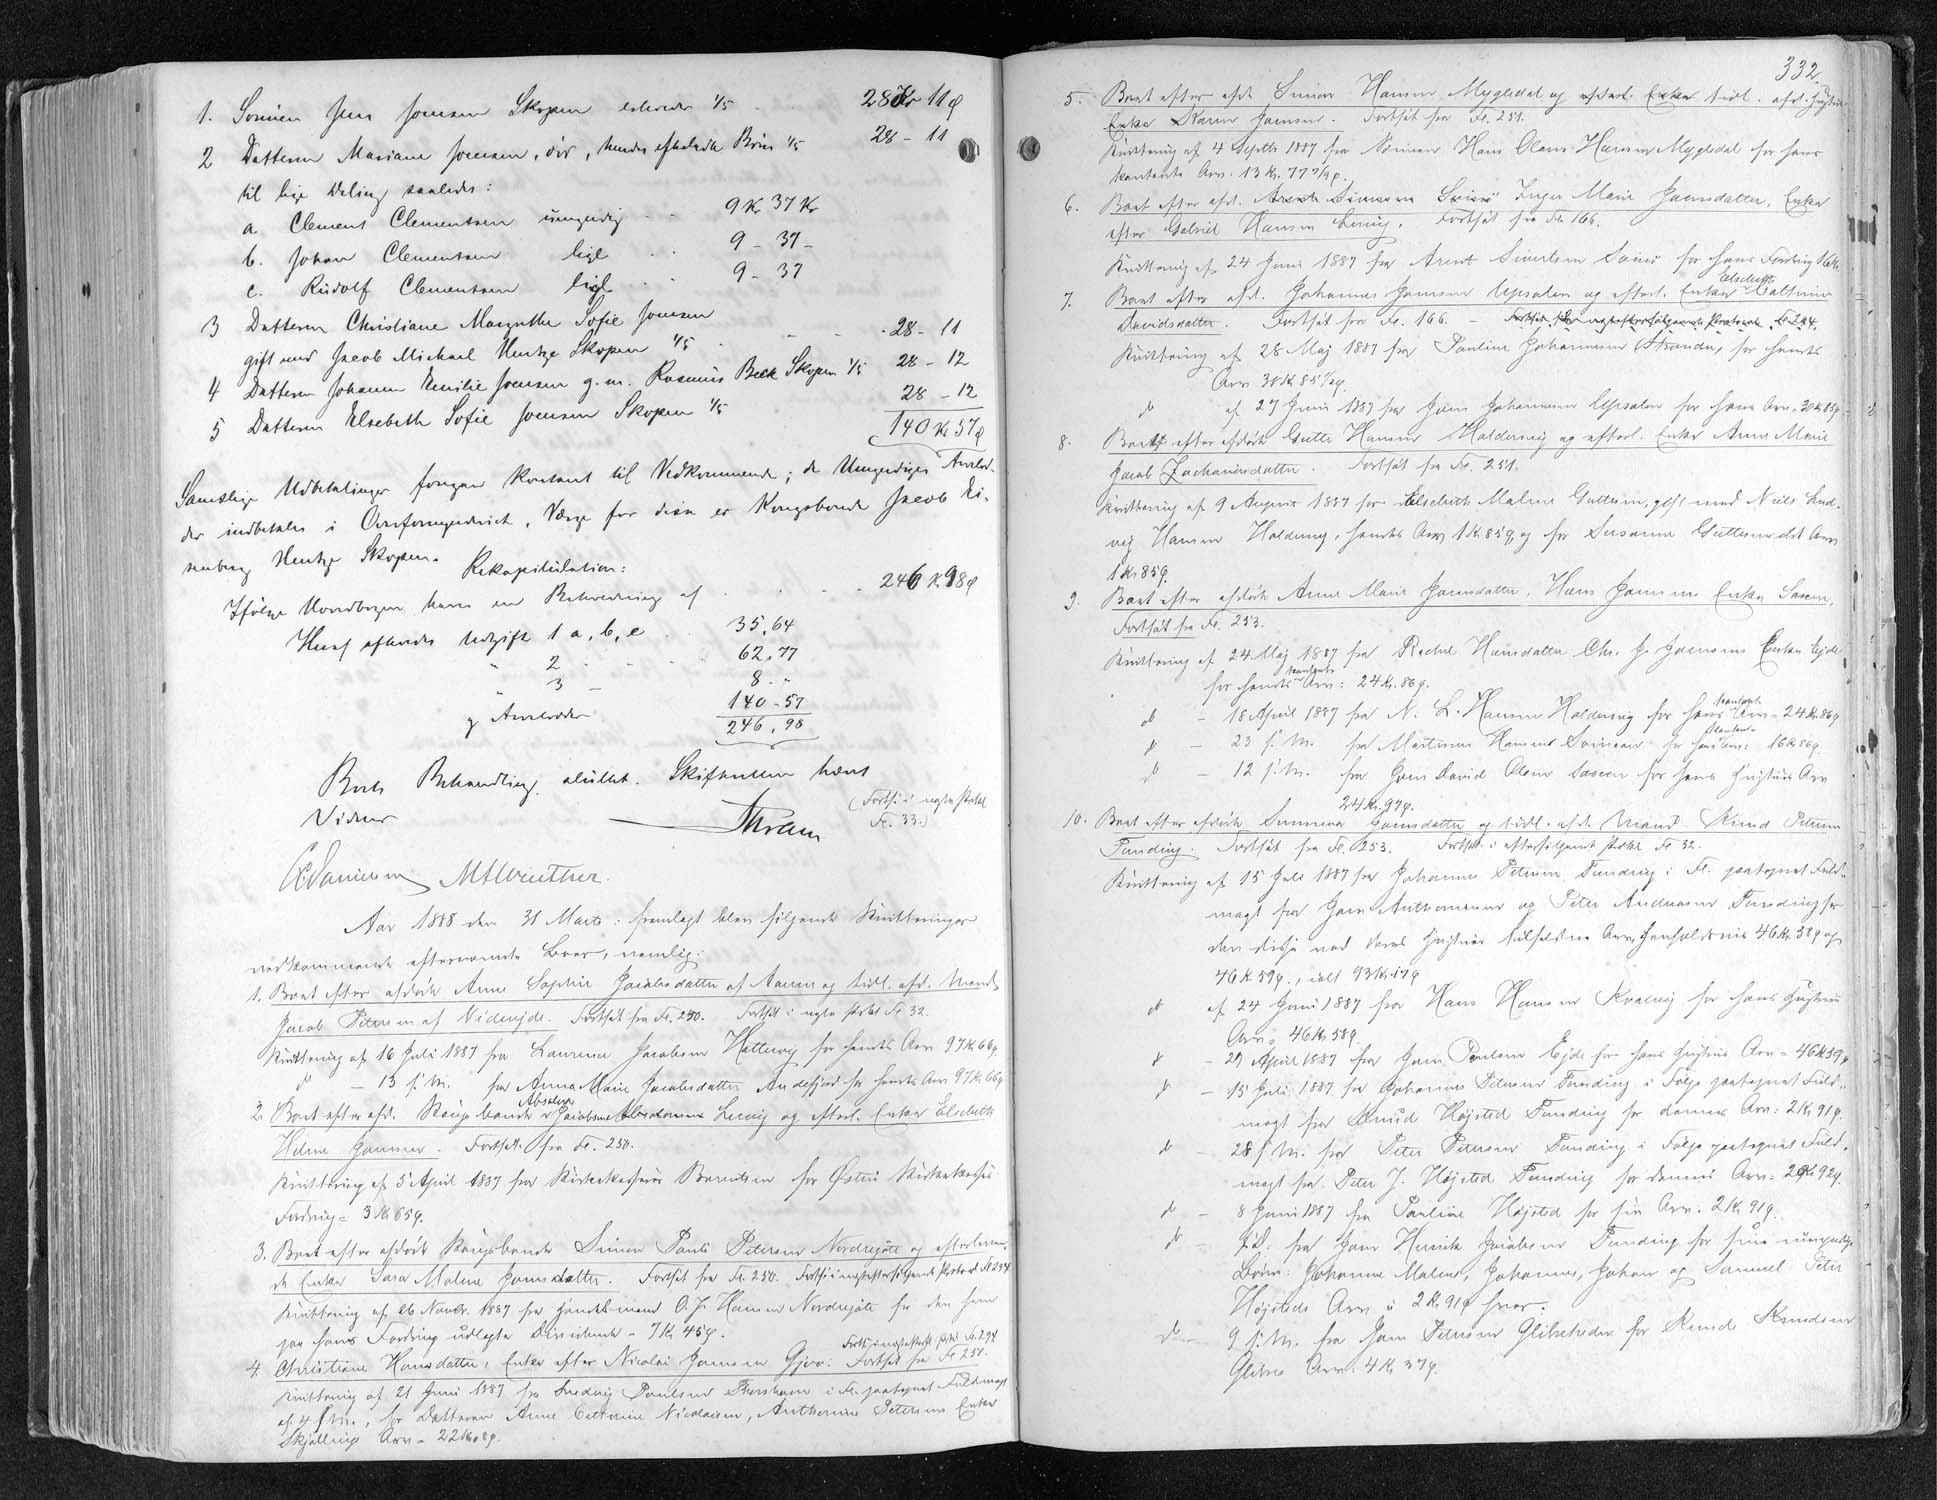 1. Sønnen Jens Joensen Skopen erhverver 1/5 28 Kr 11 ø
2 Datteren Mariane Joensen, død, hendes efterladte Børn 1/5 28 - 11
til lige Deling saaledes:
a Clement Clementsen umyndig 9 Kr 37 Kr
b. Johan Clementsen lige 9 - 37 -
c. Rudolf Clementsen lige 9 - 37
3 Datteren Christiane Margrethe Sofie Joensen
gift med Jacob Michael Hentze Skopen 1/5 28 - 11
4 Datteren Johanne Emilie Joensen g. m. Rasmus Beck Skopen 1/5 28 - 12
5 Datteren Elsebeth Sofie Joensen Skopen 1/5 28 - 12
140 Kr 57 ø
Samtlige Udbetalinger foregaar kontant til Vedkommende; de Umyndiges Arvelod-
der indbetales i Overformynderiet. Værge for disse er Kongsbonde Jacob
Hentze Skopen.
Rekapitulation:
Ifølge Hovedbogen haves en Beholdning af 246 Kr 98 ø
Heraf afholdes Udgift 1 a, b, c 35,64
" 2 - 62,77
" 3 - 8 . "
og Arvelodder 140 - 57
246,98
Boets Behandling sluttet. Skifteretten hævet
Vidner (Forts. i nyeste Protokol
Fl. 33.)
Aar 1888 den 31 Marts: fremlagt blev følgende Kvitteringer
vedkommende efternævnte Boer, nemlig:
1. Boet efter afdøde Anne Sophie Jacobsdatter af og tidl. afd. Mand
Jacob Petersen af Videreide. Fortsat fra Fl. 250. Fortsat i nyeste Protokol Fl. 32.
Kvittering af 16 Juli 1887 fra Jacobsen Hattervig for hendes Arv 97 Kr. 66 ø.
do - 13 s. M. fra Anna Marie Jacobsdatter Andefjord for hendes Arv 97 Kr. 66 ø
2. Boet efter afd. Kongsbonde Absalon Lervig og efterl. Enke Elsebeth
Helene Joensen. Fortsat fra Fl. 250.
Kvittering af 5 April 1887 fra Kirkekasserer Berentsen for Østerø Kirkekasses
Fordring = 3 Kr 65 ø.
3. Boet efter afdøde Kongsbonde Simon Pauli Petersen Nordregøte og efterleven-
de Enke Sara Malene Joensdatter. Fortsat fra Fl. 250.
Kvittering af 26 Novbr. 1887 fra Handelsmand O. J. Hansen Nordregøte for den ham
paa hans Fordring udlagte Dividende - 7 Kr 45 ø.
4. Christiane Hansdatter, Enke efter Nicolai Joensen Gjov: Fortsat fra Fl. 251.
Kvittering af 21 Juni 1887 fra Poulsen Thorshavn i Fl. paategnet Fuldmagt
af 4 s. M., for Datteren Anne Cathrine Nicolaisen, Petersens Enke
Skjelling Arv -
332.
5. Boet efter afd. Simon Hansen Mygledal og Enke tidl. afd. Hustru
Enke Karen Joensen. Fortsat fra Fl. 251.
Kvittering af 4 Septbr 1887 fra Sønnen Hans Olaus Hansen Mygledal for hans
kontante Arv. 13 Kr. 77
6. Boet efter afd. Inger Marie Joensdatter, Enke
efter Gabriel Hansen Lervig. Fortsat fra Fl. 166.
Kvittering af 24 Juni 1887 fra Arent Simonsen for hans Fordring
7. Boet efter afd. Johannes Joensen Upsalen og efterl. Enke Elsebeth Cathrine
Davidsdatter. Fortsat fra Fl. 166.
Kvittering af 28 Maj 1887 fra Pauline Johannesen Strande, for hendes
Arv 30 Kr 85
do af 27 Juni 1887 fra Joen Johannesen Upsalen for hans Arv - 30 Kr 85 ø
8. Boet efter afdøde Gutte Hansen Haldersvig og efterl. Enke Anne Marie
Jacob Zachariasdatter. Fortsat fra Fl. 251.
Kvittering af 9 August 1887 for Elsebeth Malene Guttesen, gift med Niels Lud-
vig Hansen Haldersvig, hendes Arv 1 Kr. 85 ø, og for Susanne Guttesen dit Arv
1 Kr 85 ø.
9. Boet efter afdøde Anne Marie Joensdatter, Hans Joensens Enke Saxen,
Fortsat fra Fl. 253.
Kvittering af 24 Maj 1887 fra Rachel Hansdatter Chr. J. Joensens Enke Ejde
for hendes kontante Arv: 24 Kr. 86 ø.
do - 18 April 1887 fra N. L. Hansen Haldersvig for hans kontante Arv - 24 Kr. 86 ø
do - 23 s. M. fra Martinus Hansen for hans kontante Arv: 16 Kr 86 ø.
do - 12 s. M. fra Joen David Olsen Saxen for hans Hustrues Arv
24 Kr. 97 ø.
10. Boet efter afdøde Sunneva Joensdatter og tidl. afd. Mand Knud Petersen
Funding. Fortsat fra Fl. 253. Fortsat i efterfølgende Protokol Fl. 32.
Kvittering af 15 Juli 1887 fra Johannes Petersen, Funding i Fl. paategnet Fuld-
magt fra Joen Anthoniesen og Peter Andreasen Funding for
den disse ved deres Hustruer tilfaldne Arv, henholdsvis 46 Kr. 58 ø og
46 Kr. 59 ø., ialt 93 Kr. 17 ø
do af 24 Juni 1887 fra Hans Hansen Kvalvig for hans Hustrues
Arv = 46 Kr. 58 ø.
do - 29 April 1887 fra Joen Poulsen Ejde for hans Hustrues Arv = 46 Kr 59 ø
do - 15 Juli 1887. fra Johannes Petersen Funding i Følge paategnet Fuld-
magt fra Knud Højsted Funding for dennes Arv: 2 Kr. 91 ø.
do - 28 s. M. fra Peter Petersen Funding i Følge paategnet Fuld-
magt fra Peter J. Højsted Funding for dennes Arv = 2 Kr. 92 ø.
do - 8 Juni 1887 fra Pauline Højsted for sin Arv. 2 Kr. 91 ø.
do - s. D. fra Joen Henrik Jacobsen Funding for sine umyndige
Børn: Johanne Malene, Johannes, Johan og Samuel Peter
Højsteds Arv á 2 Kr. 91 ø hver.
do - 9 s. M. fra Joen Petersen Glibreheder for Knud Knudsen
Glibre Arv. 4 Kr. 37 ø.